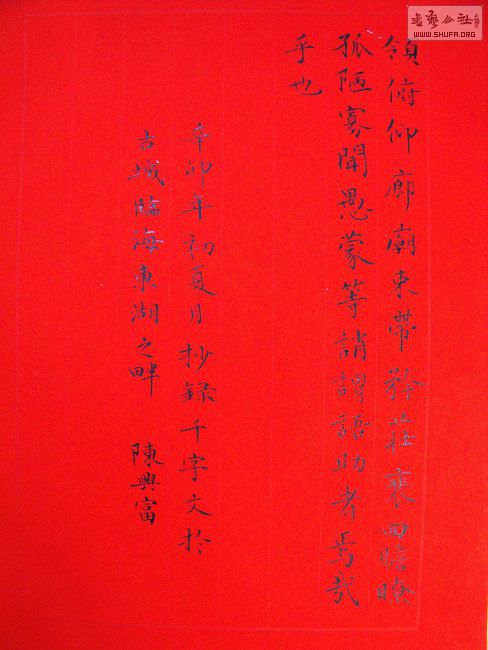 領俯仰廊廟束帶矜莊裹回瞻暸
孤陋寡聞愚蒙等誚謂語助者焉哉
乎也
辛卯年初夏月抄録千字文於
古城臨海東湖之畔 陳興富
书艺公社
WWW.SHUFA.ORG